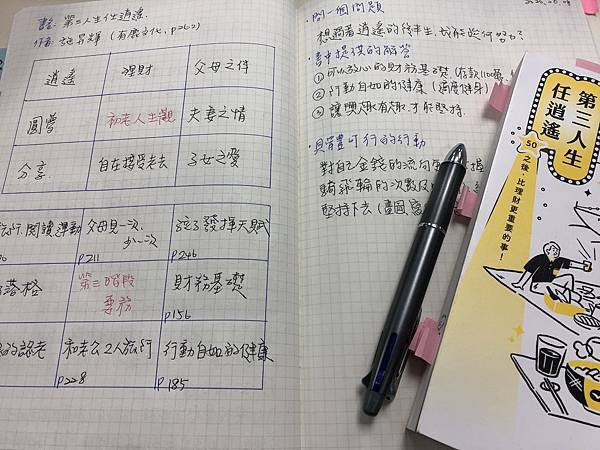 書名:第三人生任逍遙.
作者:施昇輝(有鹿文化, p262)
逍遙 理財 父母之伴
圓夢 初老人生觀 夫妻之情
分享 自在接受老去 子女之愛
旅行.閱讀.運動 父母見一次、少一次 p211 孩子發揮天賦 p246
落格 第三階段 專務 財務基礎 p156
的認老 和老公2人旅行 p228 行動自如的健康 p185
・問一個問題
想過著逍遙的後半生,我能做何努力?
・書中提供的解答
①可以放心的財務基礎(存款1100萬
②行動自如的健康(適度健身)
③讓興趣有 才能堅持.
・具體可行的行動
對自己金錢的流向
騎飛輪的次數
堅持下去(畫圖、
第三人生
任逍遙
50
之後,比理財更重要的事!